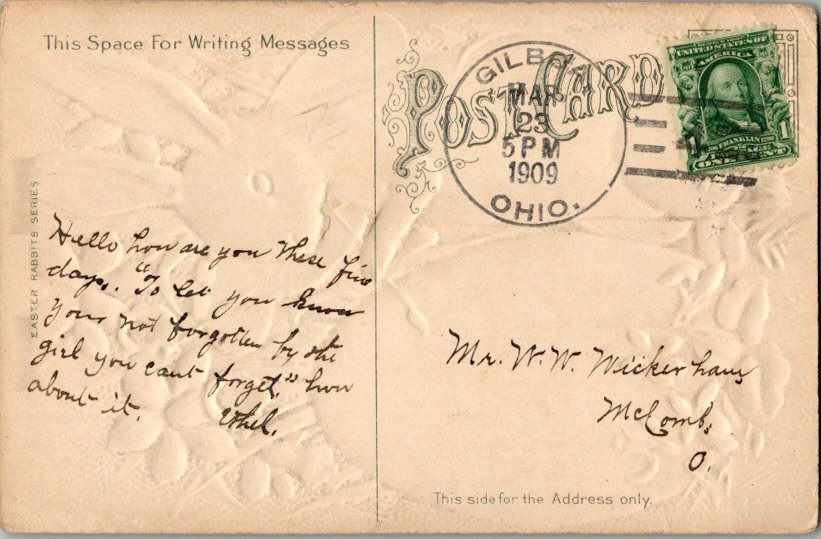 This Space For Writing Messages
EASTER RABBITS SERIES
Hello how are you these fine
days. "To let you know
your not forgotten by the
girl you cant forget." how
about it.
Ethel.
POST CARD
GILBOA
MAR
23
5 PM
1909
OHIO.
UNITED STATES OF
AMERICA
FRANKLIN
1
POSTAGE
ONE CENT
Mr. W. W. Wickerham
McComb,
O.
This side for the Address only.